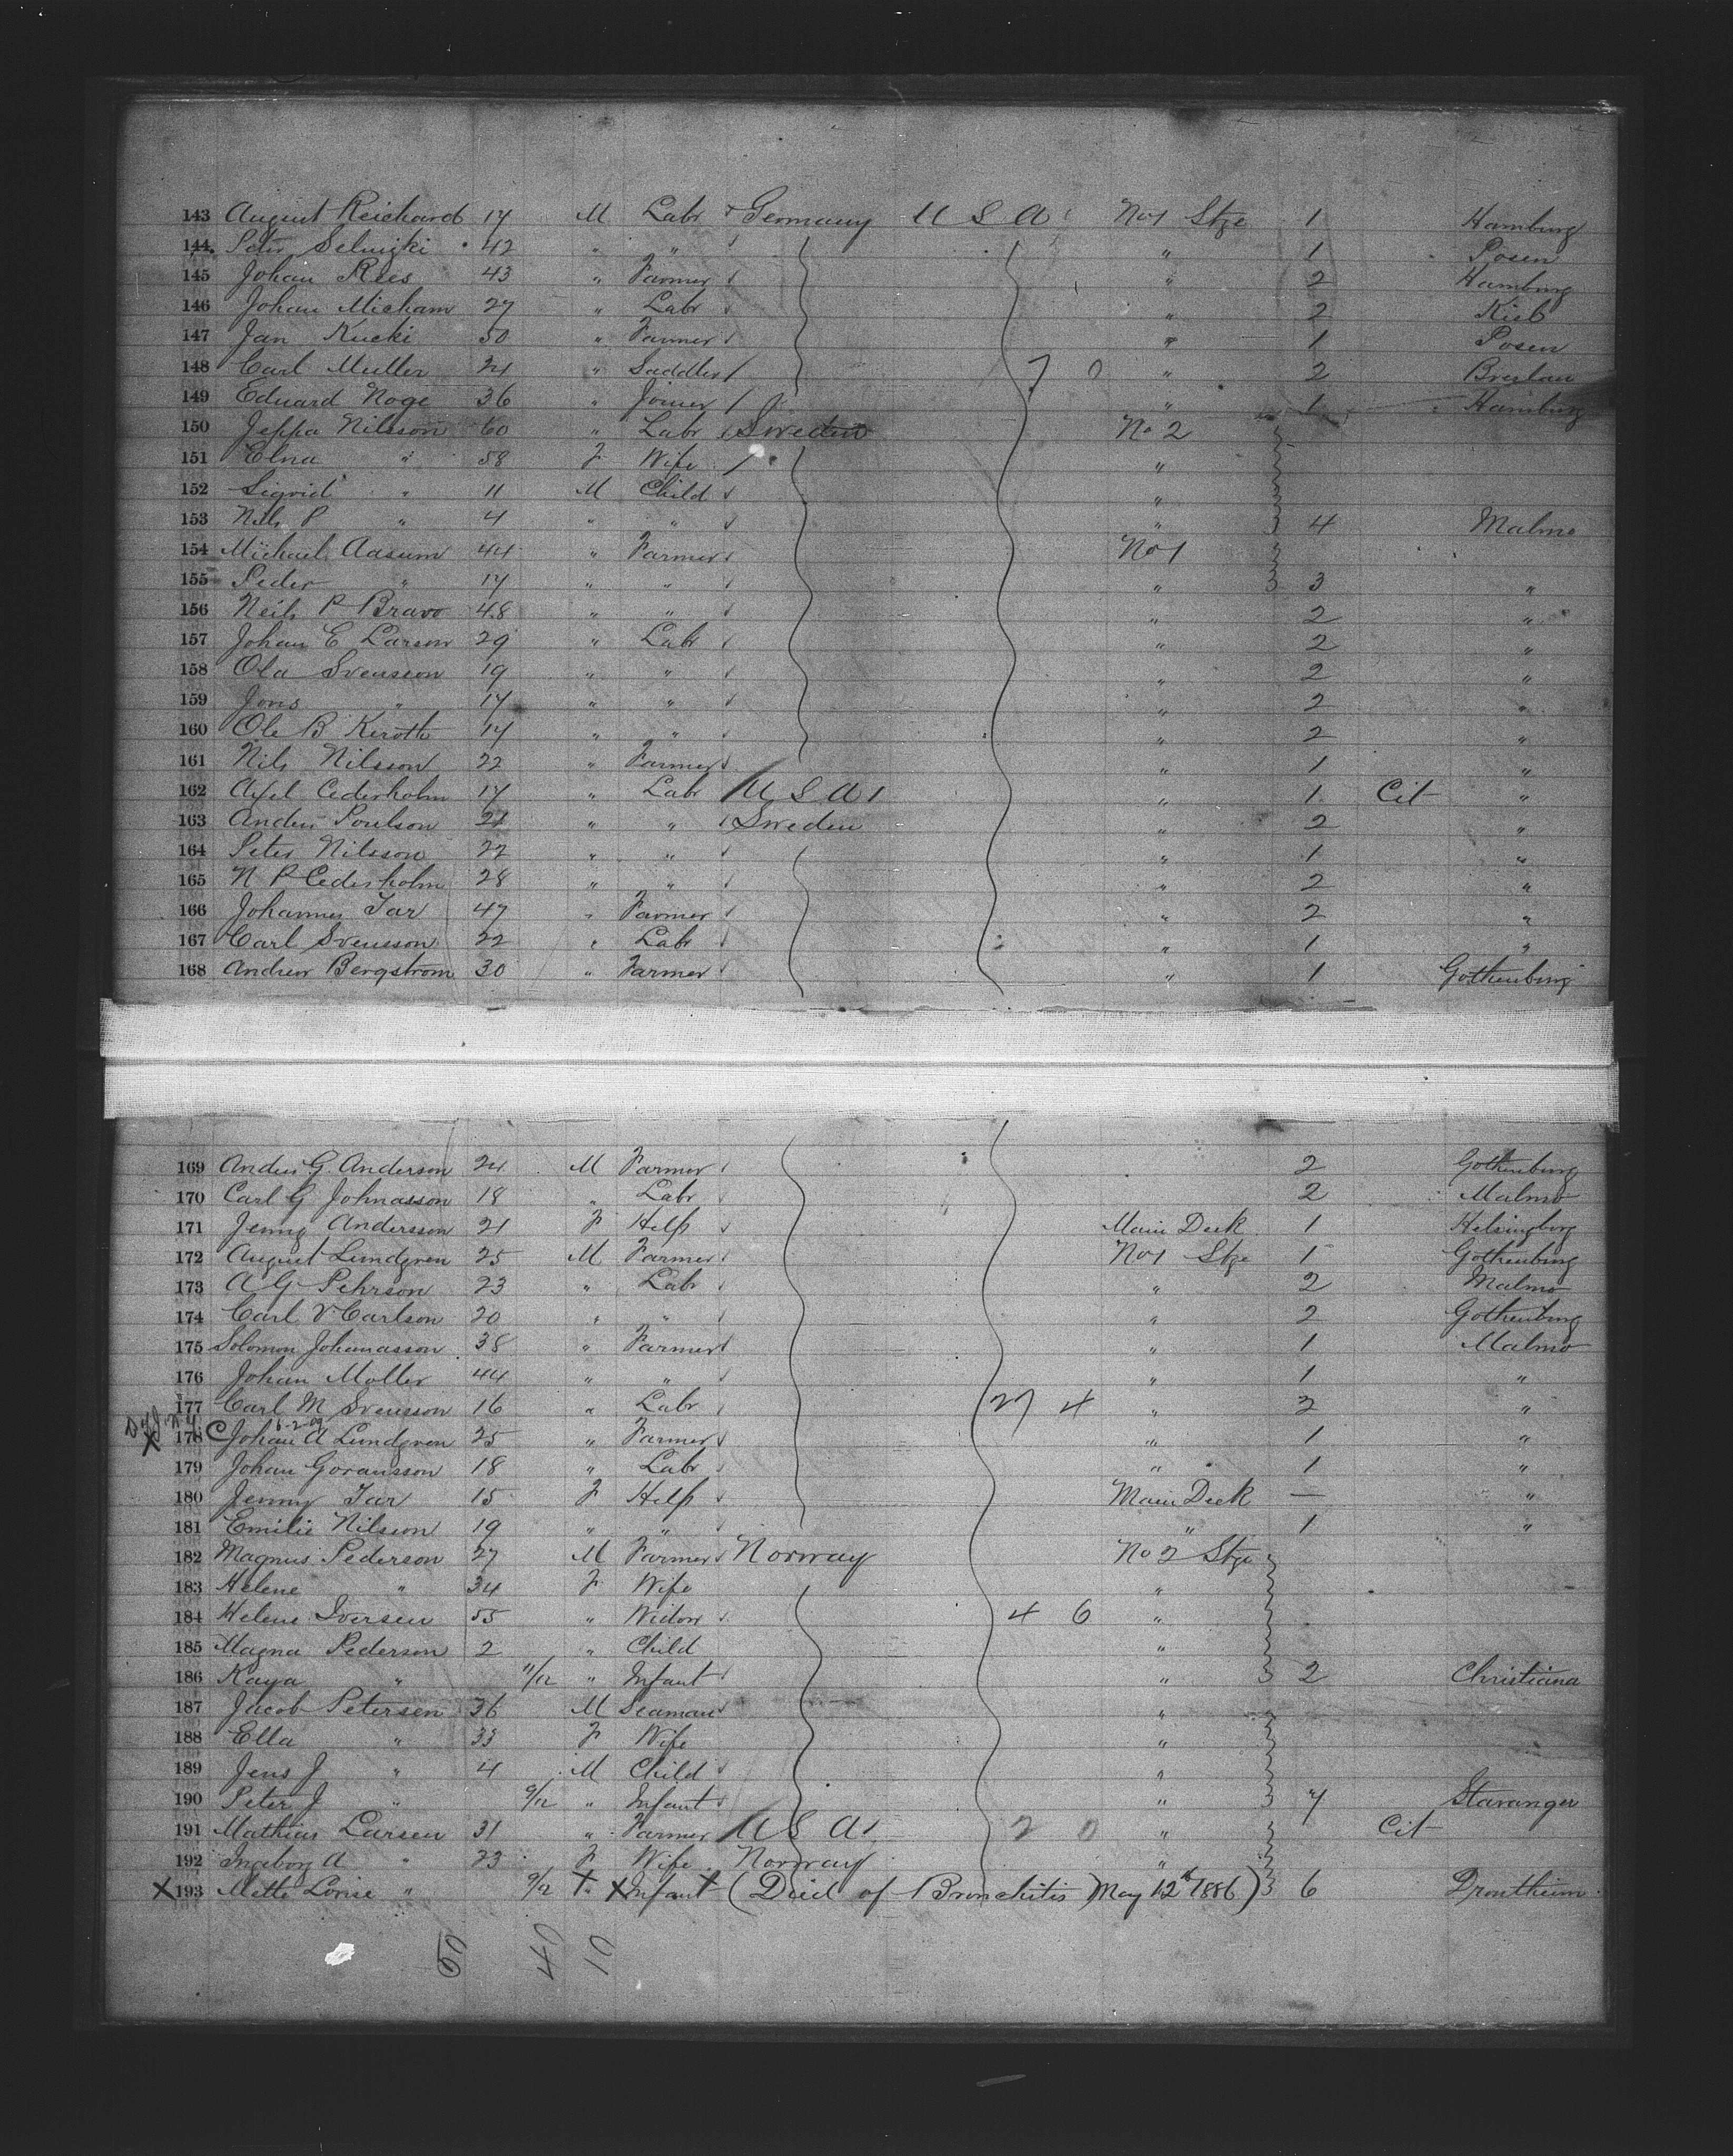 143 August Reichard 17 M Labr Germany U S A No 1 Stge 1 Hamburg
144 Peter Selnizki 42 " " " 1 Posen
145 Johan Rees 43 " Farmer " 2 Hamburg
146 Johan Micham 27 " Labr " 2 Kiel
147 Jan Kucki 50 " Farmer " 1 Posen
148 Carl Muller 24 " Saddler 7 0 " 2 Breslau
149 Eduard Noge 36 " Joiner " 1 Hamburg
150 Jeppa Nilsson 60 " Labr Sweden No 2
151 Elna " 58 F Wife "
152 Sigrid " 11 M Child "
153 Nils P " 4 " " " 4 Malmo
154 Michael Aasum 44 " Farmer No 1
155 Peder " 17 " " " 3 "
156 Neils P Bravo 48 " " " 2 "
157 Johan E Larson 29 " Labr " 2 "
158 Ola Svensson 19 " " " 2 "
159 Jons " 17 " " " 2 "
160 Ole B Keroth 17 " " " 2 "
161 Nils Nilsson 22 " Farmer " 1 "
162 Axel Cederholm 17 " Labr U S A " 1 Cit "
163 Anders Poulson 21 " " Sweden " 2 "
164 Peter Nilsson 22 " " " 1 "
165 N P Cederholm 28 " " " 2 "
166 Johannes Tar 47 " Farmer " 2 "
167 Carl Svensson 22 " Labr " 1 "
168 Andrew Bergstrom 30 " Farmer " 1 Gothenburg
169 Anders G. Anderson 24 M Farmer 2 Gothenburg
170 Carl G Johnasson 18 " Labr 2 Malmo
171 Jenny Andersson 21 F Help Main Deck 1 Helsingborg
172 August Lundgren 25 M Farmer No 1 Stge 1 Gothenburg
173 A G Pehrson 23 " Labr " 2 Malmo
174 Carl V Carlson 20 " " " 2 Gothenburg
175 Solomon Johanasson 38 " Farmer " 1 Malmo
176 Johan Moller 44 " " " 1 "
177 Carl M Svensson 16 " Labr 27 4 " 2 "
6-2-09
X 178 C Johan A Lundgren 25 " Farmer " 1 "
179 Johan Goransson 18 " Labr " 1 "
180 Jenny Tar 15 F Help Main Deck — "
181 Emilie Nilsson 19 " " " 1 "
182 Magnus Pederson 27 M Farmer Norway No 2 Stge
183 Helene " 34 F Wife "
184 Helene Iversen 55 " Widow 4 6 "
185 Magna Pederson 2 " Child "
186 Kaya " 11/12 " Infant " 2 Christiana
187 Jacob Petersen 36 M Seaman "
188 Ella " 33 F Wife "
189 Jens J " 4 M Child "
190 Peter J " 9/12 " Infant " 7 Stavanger
191 Mathias Larsen 31 " Farmer U S A 2 0 " Cit
192 Ingeborg A " 23 F Wife Norway "
X 193 Mette Lovise " 9/12 " X Infant (Died of Bronchitis May 12th 1886) 6 Drontheim
50 40 10